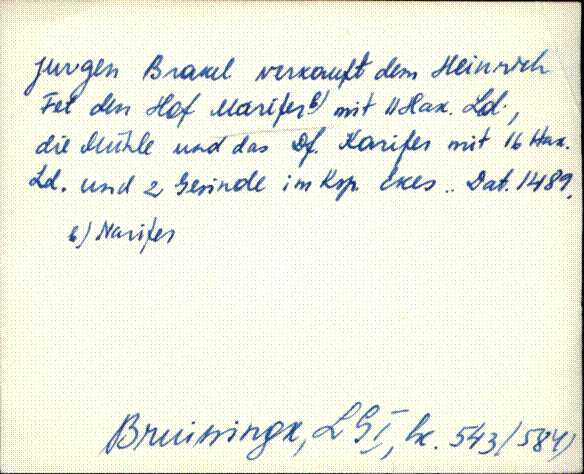 Jurgen Brakel verkauft dem Heinrich
Fet den Hof Marifer b) mit 11 Hax. Ld.,
die Mühle und das Df. Karifer mit 16 Hax.
Ld. und 2 Gesinde im Ksp. Ekes.. Dat. 1489.
b) Narifer
Bruiningx, LG I, № 543/584)